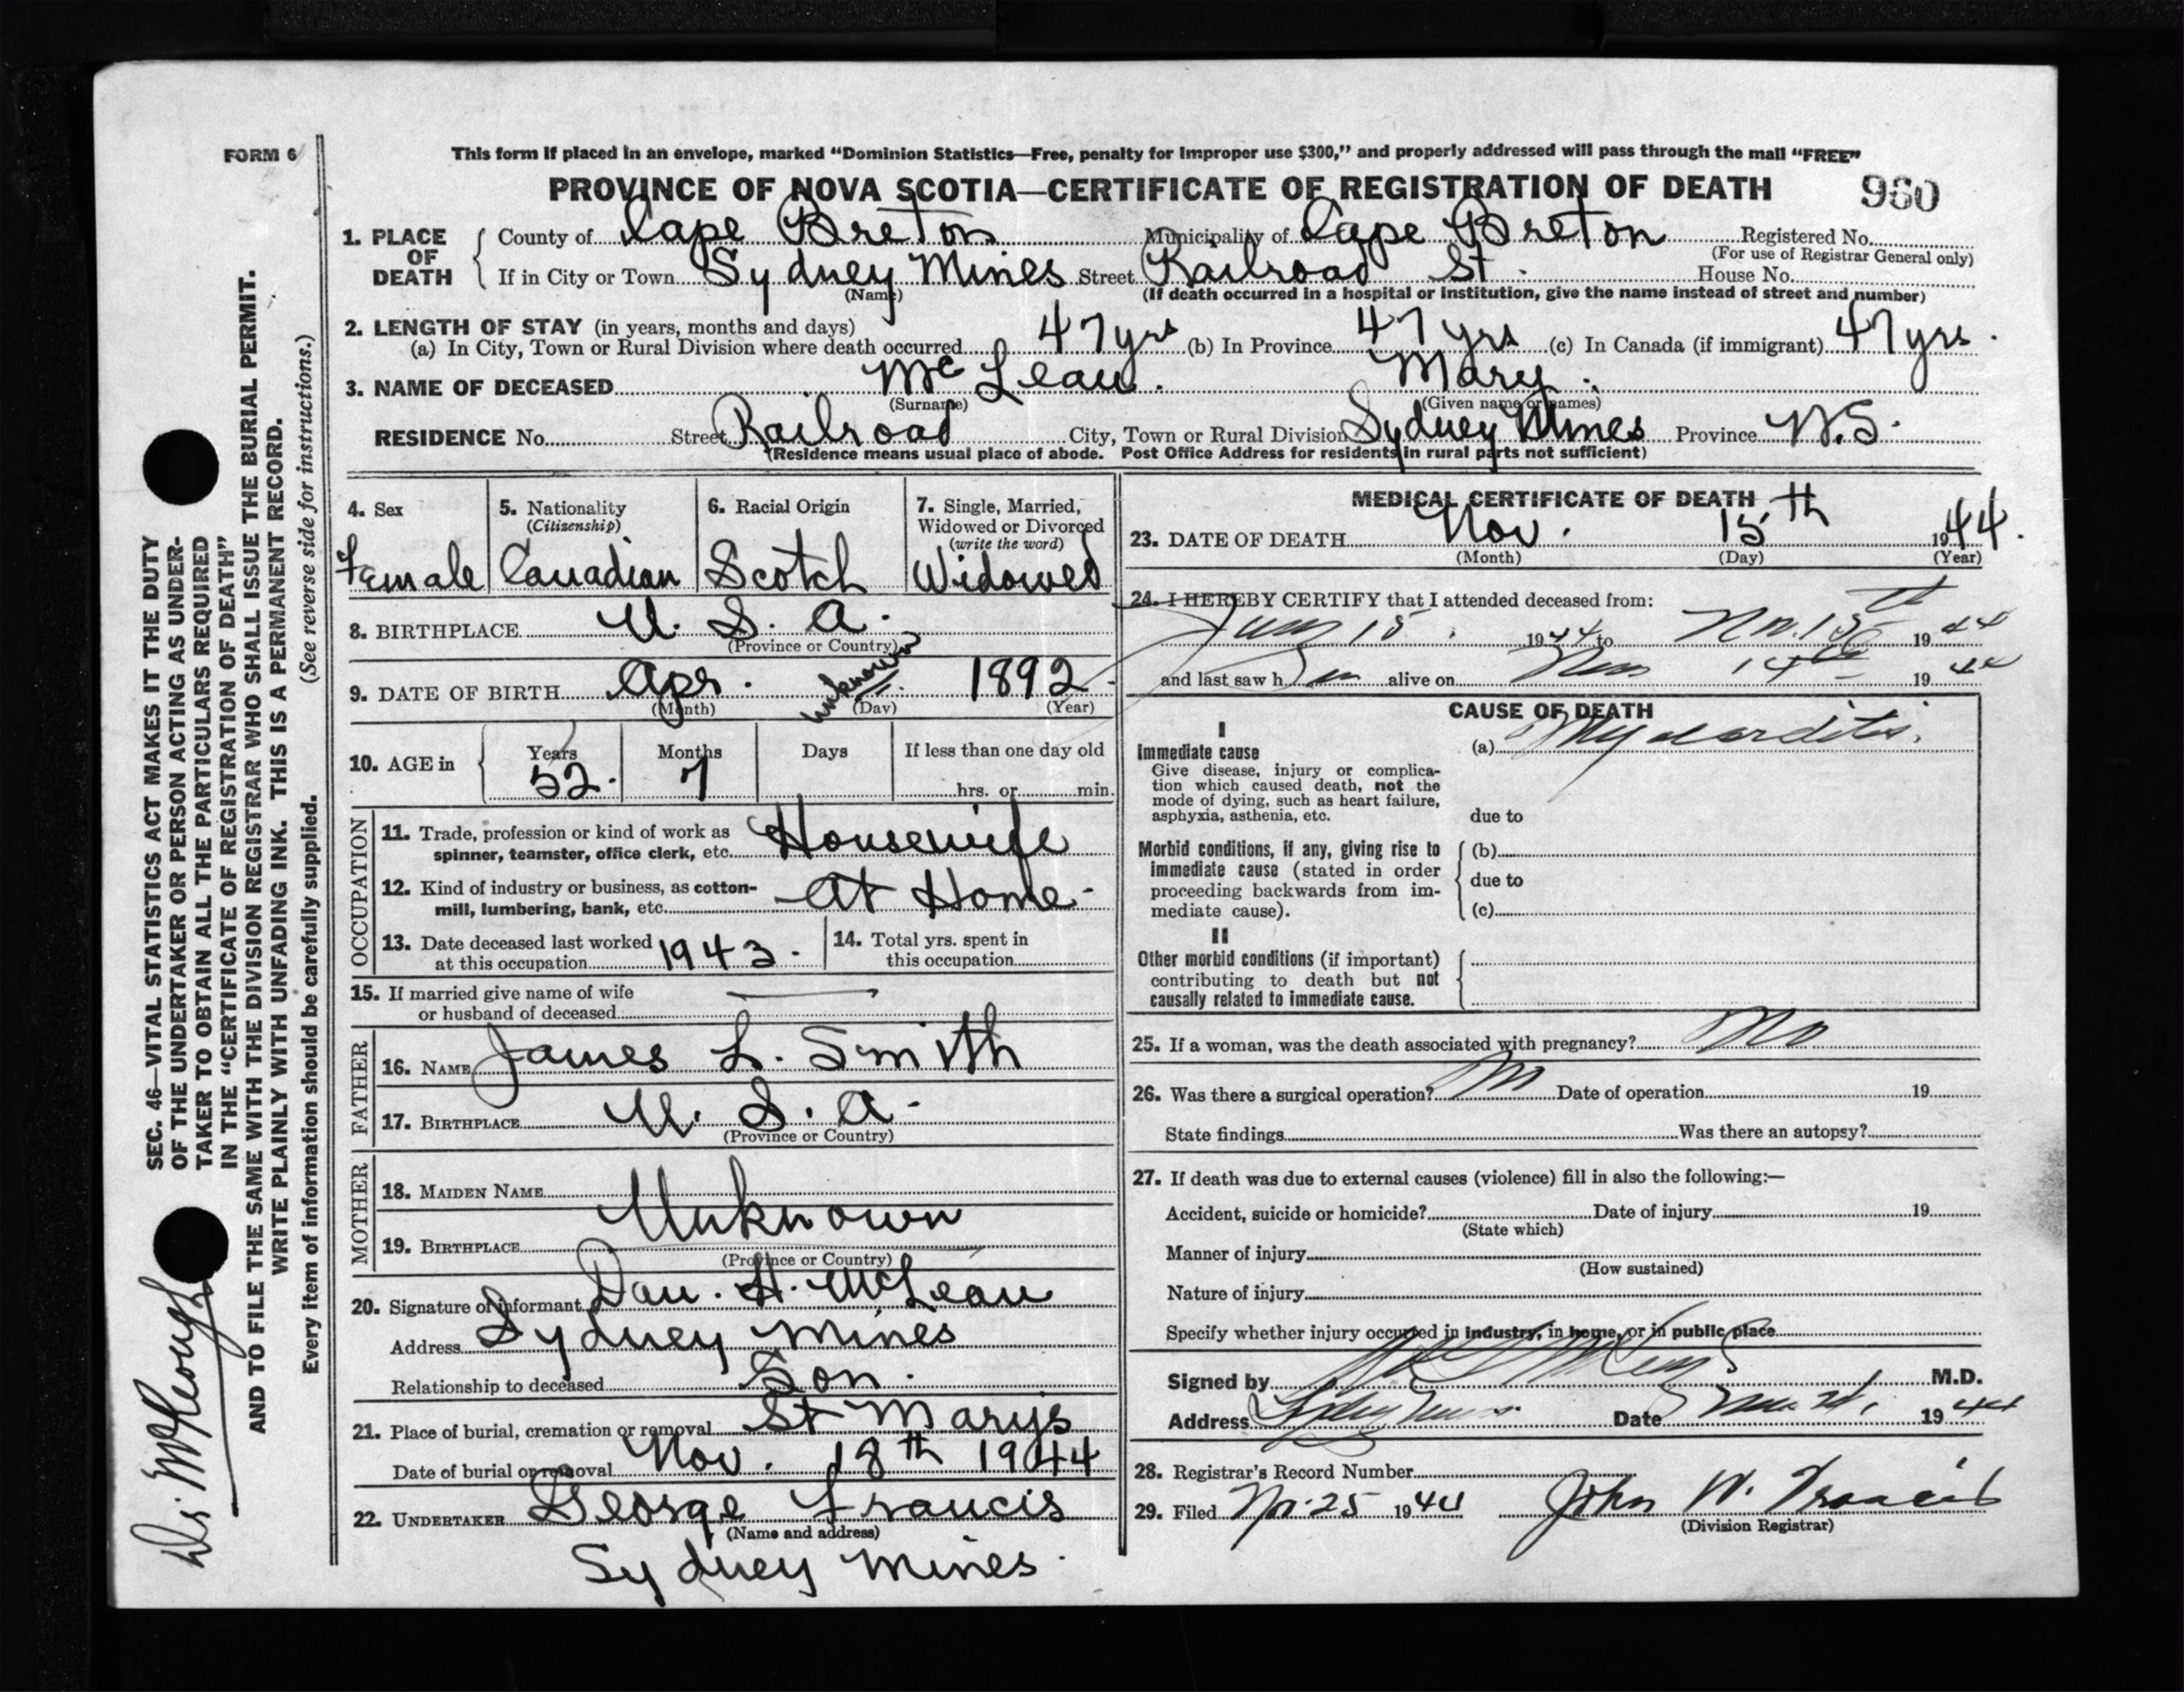 FORM 6
This form if placed in an envelope, marked "Dominion Statistics—Free, penalty for improper use $300," and properly addressed will pass through the mail "FREE"
PROVINCE OF NOVA SCOTIA—CERTIFICATE OF REGISTRATION OF DEATH 960
1. PLACE OF DEATH
County of Cape Breton Municipality of Cape Breton Registered No.
(For use of Registrar General only)
If in City or Town Sydney Mines Street Railroad St. House No.
(Name) (If death occurred in a hospital or institution, give the name instead of street and number)
2. LENGTH OF STAY (in years, months and days)
(a) In City, Town or Rural Division where death occurred 47 yrs (b) In Province 47 yrs (c) In Canada (if immigrant) 47 yrs.
3. NAME OF DECEASED McLean. Mary.
(Surname) (Given name or names)
RESIDENCE No. Street Railroad City, Town or Rural Division Sydney Mines Province N.S.
(Residence means usual place of abode. Post Office Address for residents in rural parts not sufficient)
4. Sex
Female
5. Nationality
(Citizenship)
Canadian
6. Racial Origin
Scotch
7. Single, Married,
Widowed or Divorced
(write the word)
Widowed
8. BIRTHPLACE U. S. A.
(Province or Country)
9. DATE OF BIRTH Apr. unknown 1892
(Month) (Day) (Year)
10. AGE in Years Months Days If less than one day old
52. 7 hrs. or min.
OCCUPATION
11. Trade, profession or kind of work as
spinner, teamster, office clerk, etc. Housewife
12. Kind of industry or business, as cotton-
mill, lumbering, bank, etc. At Home
13. Date deceased last worked
at this occupation 1943.
14. Total yrs. spent in
this occupation
15. If married give name of wife
or husband of deceased
FATHER
16. NAME James L. Smith
17. BIRTHPLACE U. S. A.
(Province or Country)
MOTHER
18. MAIDEN NAME
Unknown
19. BIRTHPLACE
(Province or Country)
20. Signature of informant Dan. H. McLean
Address Sydney Mines
Relationship to deceased Son.
21. Place of burial, cremation or removal St Marys
Date of burial or removal Nov. 18th 1944
22. UNDERTAKER George Francis
(Name and address)
Sydney Mines.
MEDICAL CERTIFICATE OF DEATH
23. DATE OF DEATH Nov. 15th 1944.
(Month) (Day) (Year)
24. I HEREBY CERTIFY that I attended deceased from:
15. 1944 to Nov. 15th 1944
and last saw h alive on Nov 14th 1944
CAUSE OF DEATH
I
Immediate cause
Give disease, injury or complica-
tion which caused death, not the
mode of dying, such as heart failure,
asphyxia, asthenia, etc.
(a) Myocarditis.
due to
Morbid conditions, if any, giving rise to
immediate cause (stated in order
proceeding backwards from im-
mediate cause).
(b)
due to
(c)
II
Other morbid conditions (if important)
contributing to death but not
causally related to immediate cause.
25. If a woman, was the death associated with pregnancy? No
26. Was there a surgical operation? No Date of operation 19
State findings Was there an autopsy?
27. If death was due to external causes (violence) fill in also the following:—
Accident, suicide or homicide? Date of injury 19
(State which)
Manner of injury
(How sustained)
Nature of injury
Specify whether injury occurred in industry, in home, or in public place
Signed by M.D.
Address Sydney Mines Date 1944
28. Registrar's Record Number
29. Filed Nov. 25 1944 John W. Francis
(Division Registrar)
SEC. 46—VITAL STATISTICS ACT MAKES IT THE DUTY
OF THE UNDERTAKER OR PERSON ACTING AS UNDER-
TAKER TO OBTAIN ALL THE PARTICULARS REQUIRED
IN THE "CERTIFICATE OF REGISTRATION OF DEATH"
AND TO FILE THE SAME WITH THE DIVISION REGISTRAR WHO SHALL ISSUE THE BURIAL PERMIT.
WRITE PLAINLY WITH UNFADING INK. THIS IS A PERMANENT RECORD.
Every item of information should be carefully supplied. (See reverse side for instructions.)